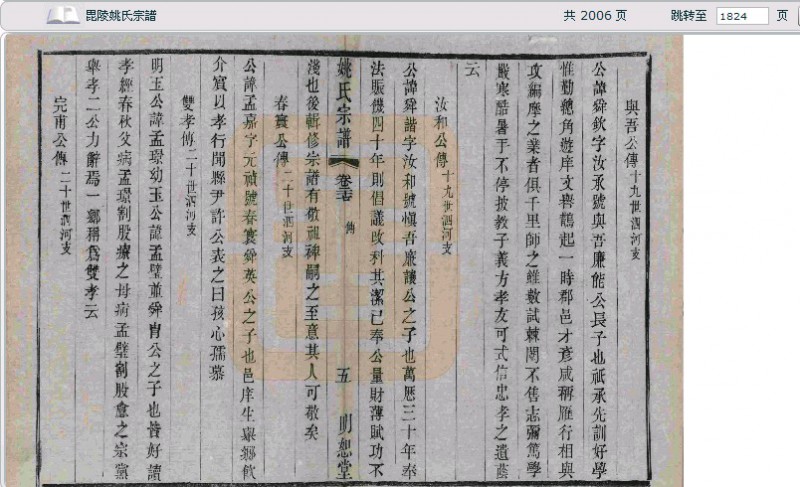 毘陵姚氏宗譜
共 2006 页
跳转至 1824 页
與吾公傳 十九世泗河支
公諱舜欽字汝承號與吾廉能公長子也祇承先訓好學
惟勤總角遊庠文譽鵲起一時郡邑才彥咸稱雁行相與
攻編摩之業者俱千里師之雖數試棘闈不售志彌篤學
嚴寒酷暑手不停披教子義方孝友可式信忠孝之遺蔭
云
汝和公傳 十九世泗河支
公諱舜諧字汝和號愼吾廉讓公之子也萬曆三十年奉
法賑饑四十年則倡議改科其潔己奉公量財薄賦功不
姚氏宗譜 卷三 傳 五 明恕堂
淺也後輯修宗譜有敬祖神嗣之至意其人可敬矣
春寰公傳 二十世泗河支
公諱孟嘉字元禎號春寰舜英公之子也邑庠生舉鄉飲
介賓以孝行聞縣尹許公表之曰孩心孺慕
雙孝傳 二十世泗河支
明玉公諱孟璟幼玉公諱孟璧並舜肯公之子也皆好讀
孝經春秋父病孟璟割股療之母病孟璧割股愈之宗黨
舉孝二公力辭焉一鄉稱為雙孝云
完甫公傳 二十世泗河支